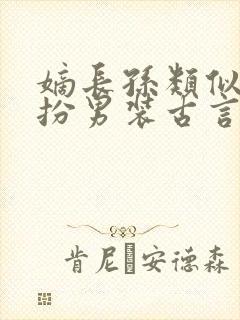 嫡長孫類似
扮男裝古言
肯尼 安德森